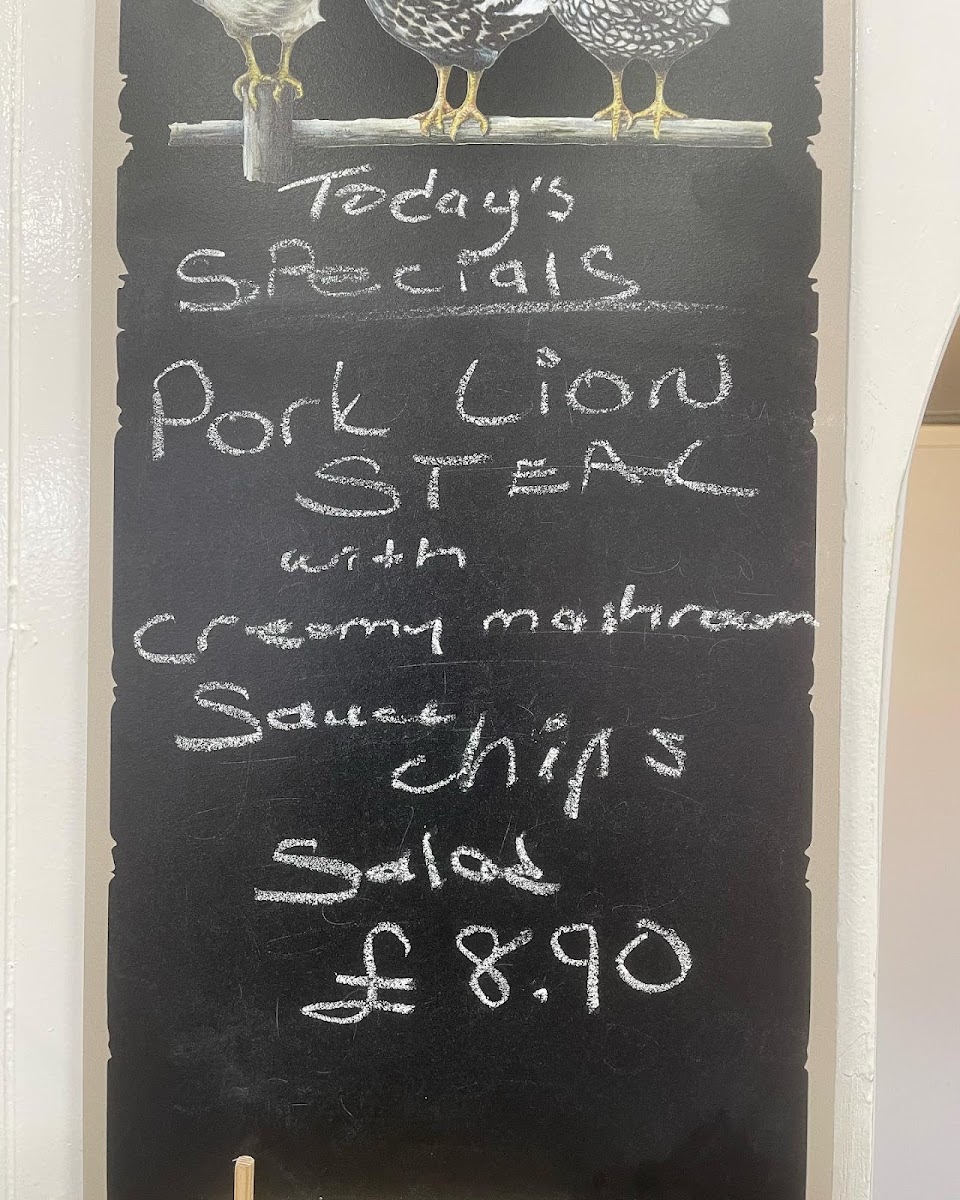 Today's
Specials
Pork Lion
STEAK
with
creamy mashroom
Sauce
chips
Salad
£8.90